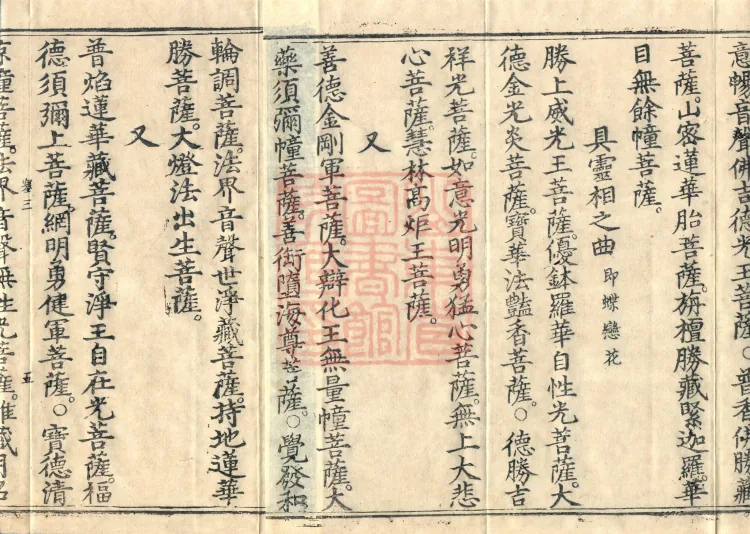 意暢音聲佛吉德光王菩薩。○普
菩薩。山密蓮華胎菩薩。栴檀勝藏緊迦羅華
目無餘幢菩薩。
具靈相之曲 即蝶戀花
勝上威光王菩薩。優鉢羅華自性光菩薩。大
德金光炎菩薩。寶華法豔香菩薩。○德勝吉
祥光菩薩。如意光明勇猛心菩薩。無上大悲
心菩薩。慧林高炬王菩薩。
又
善德金剛軍菩薩。大辯化王無量幢菩薩。大
藥須彌幢菩薩。善街墮海尊菩薩。○覺發和
輪調菩薩。法界音聲世淨藏菩薩。持地蓮華
勝菩薩。大燈法出生菩薩。
又
普焰蓮華藏菩薩。賢守淨王自在光菩薩。福
德須彌上菩薩。網明勇健軍菩薩。○寶德清
幢菩薩。法界音聲無生光菩薩。
卷三 五